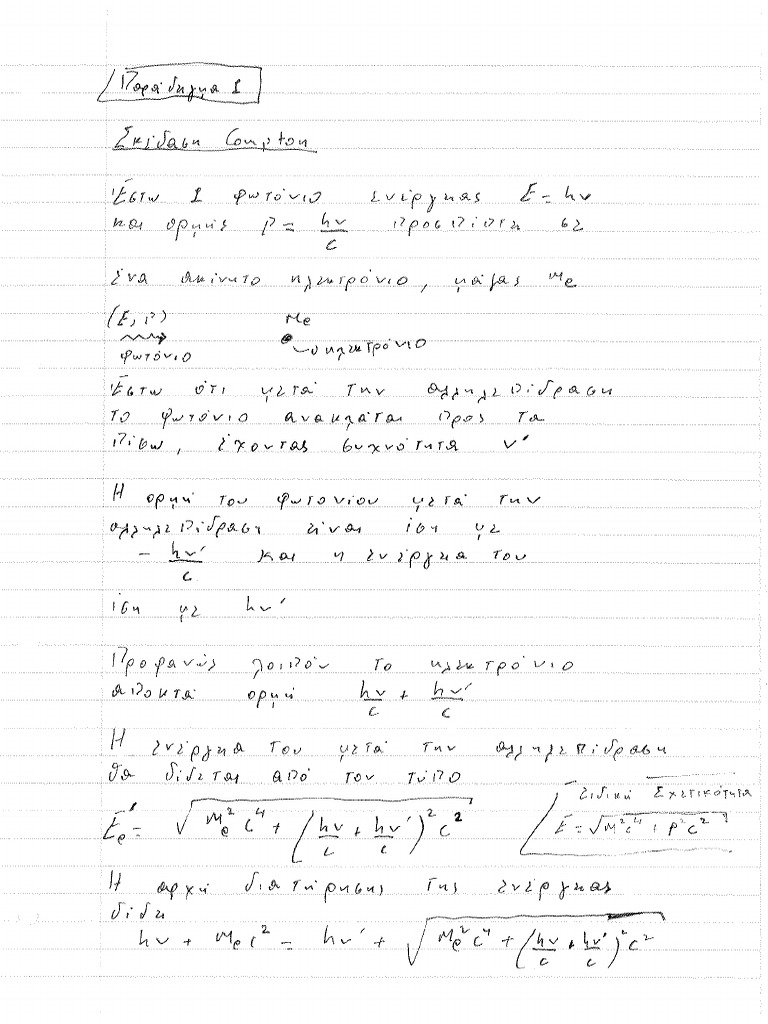 Παράδειγμα 1
Σκέδαση Compton
Έστω 1 φωτόνιο ενέργειας E = hν
και ορμής P = hν/c προσπίπτει σε
ένα ακίνητο ηλεκτρόνιο, μάζας me
(E, P) me
φωτόνιο ηλεκτρόνιο
Έστω ότι μετά την αλληλεπίδραση
το φωτόνιο ανακλάται προς τα
πίσω, έχοντας συχνότητα ν'
Η ορμή του φωτονίου μετά την
αλληλεπίδραση είναι ίση με
- hν'/c και η ενέργεια του
ίση με hν'
Προφανώς λοιπόν το ηλεκτρόνιο
αποκτά ορμή hν/c + hν'/c
Η ενέργεια του μετά την αλληλεπίδραση
θα δίδεται από τον τύπο
Ee' = √(me²c⁴ + (hν/c + hν'/c)²c²)
Ειδική Σχετικότητα
E = √(m²c⁴ + p²c²)
Η αρχή διατήρησης της ενέργειας
δίδει
hν + mec² = hν' + √(me²c⁴ + (hν/c + hν'/c)²c²)